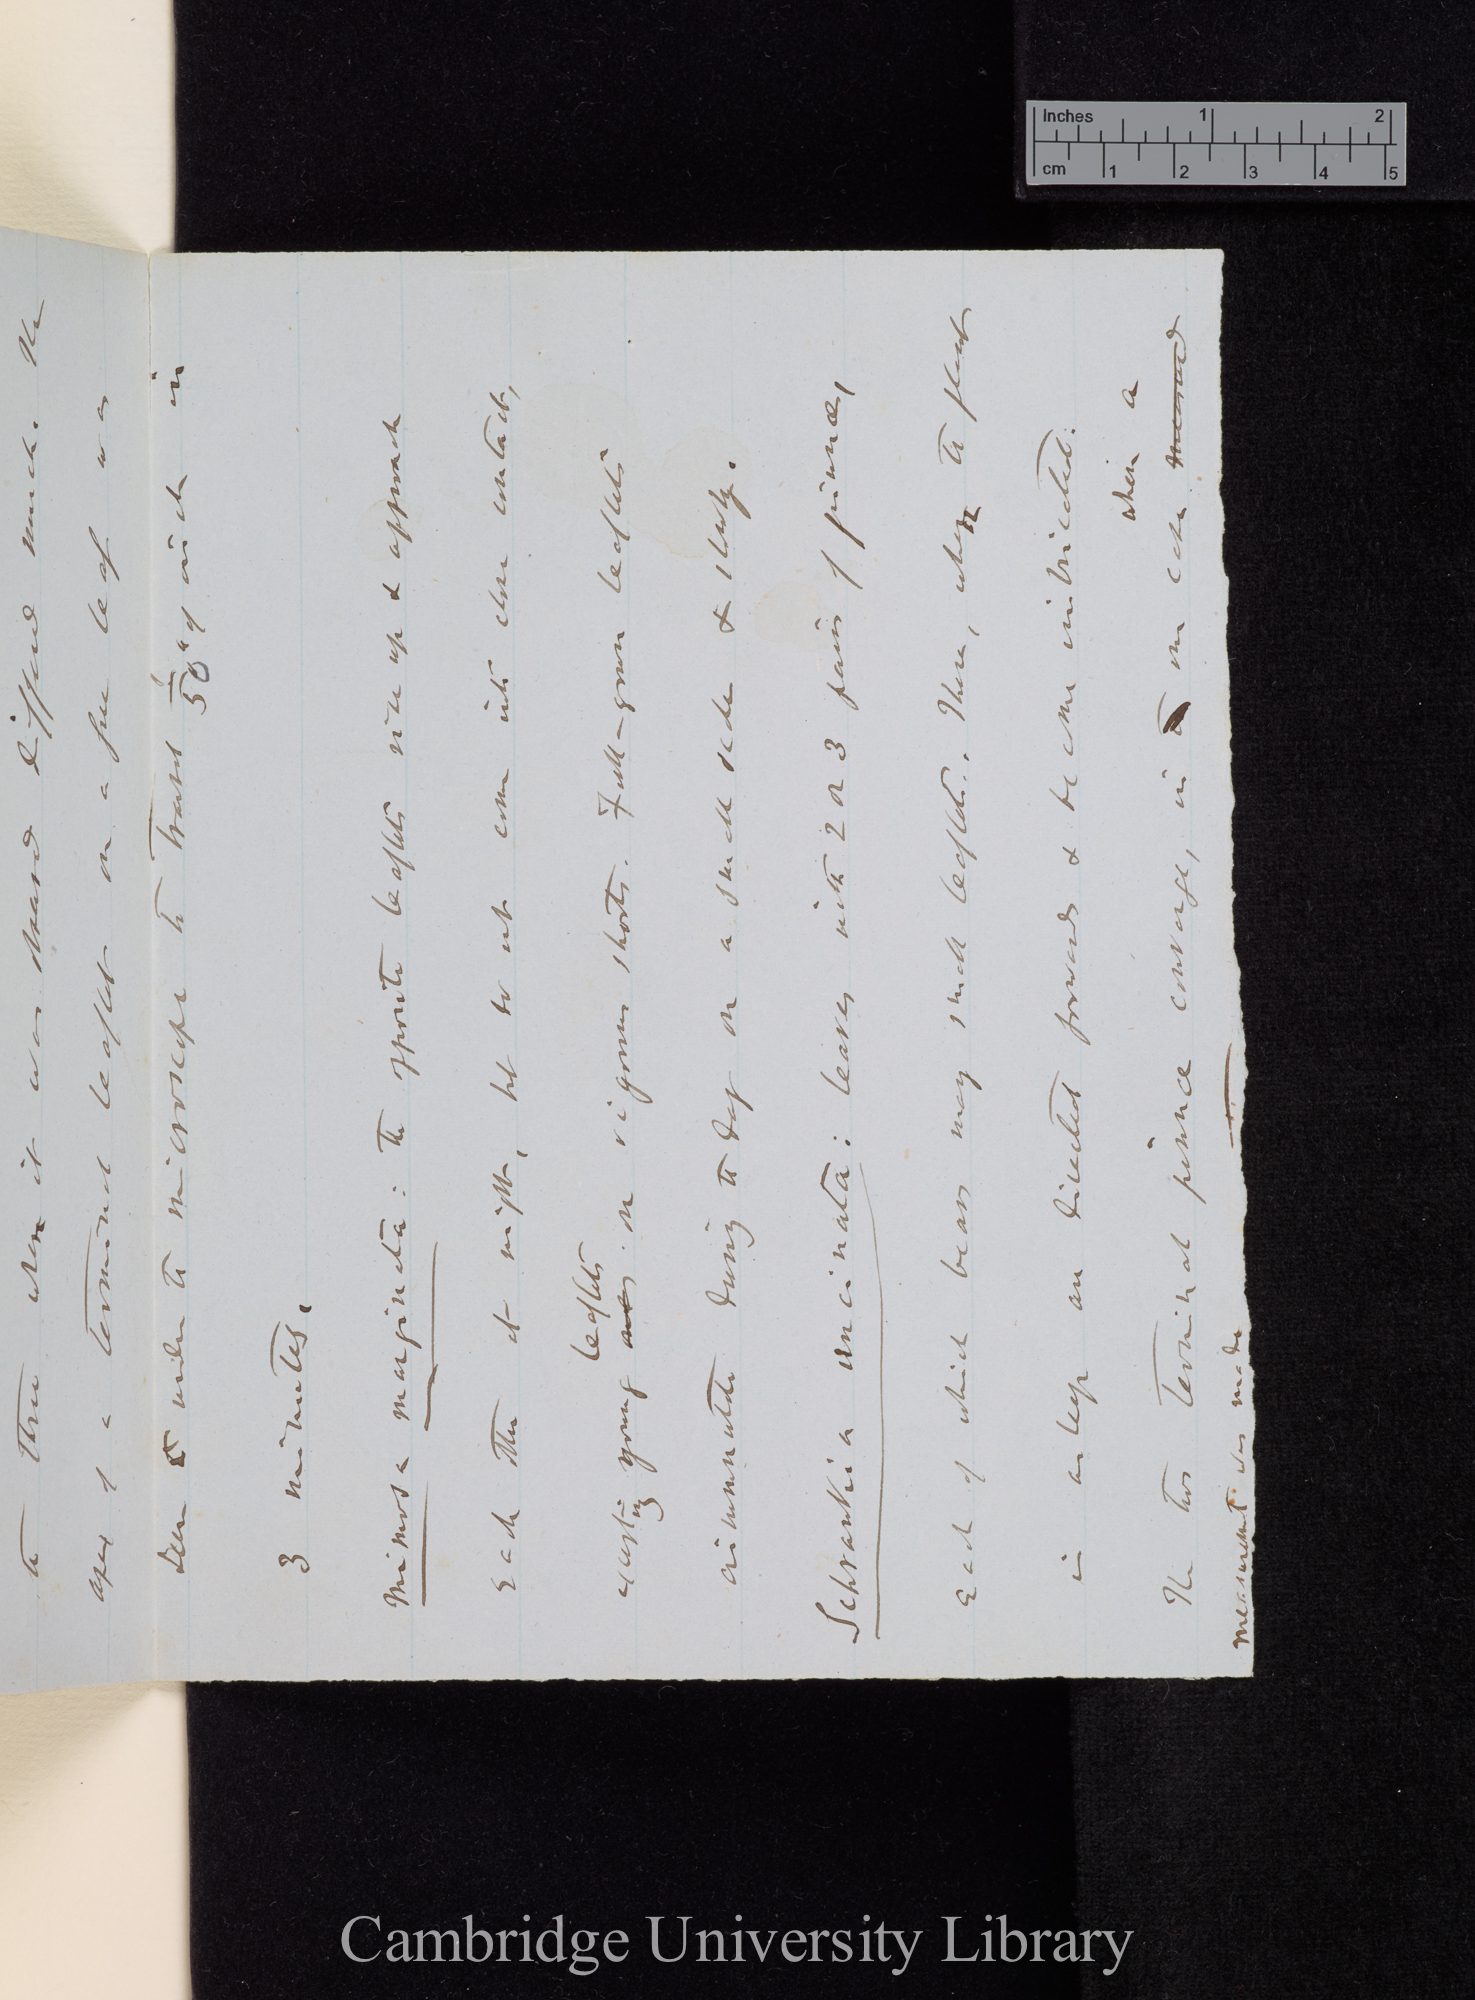 to three when it was shaded differed much. The
apex of a terminal leaflet on a free leaf was
seen under to microscope to travel 1/50th of inch in
3 minutes.
Mimosa marginata: The opposite leaflets rise up & approach
each other at night, but do not come into close contact,
leaflets
excepting young ones on vigorous shoots. Full-grown leaflets
circumnutate during to day on a small scale & slowly.
Schrankia uncinata: leaves with 2 or 3 pairs of pinnæ,
each of which bears many small leaflets. These, when to plant
is asleep are directed forwards & become imbricated.
when a
The two terminal pinnæ converge, in one case measured
measurement was made
Inches 1 2
cm 1 2 3 4 5
Cambridge University Library